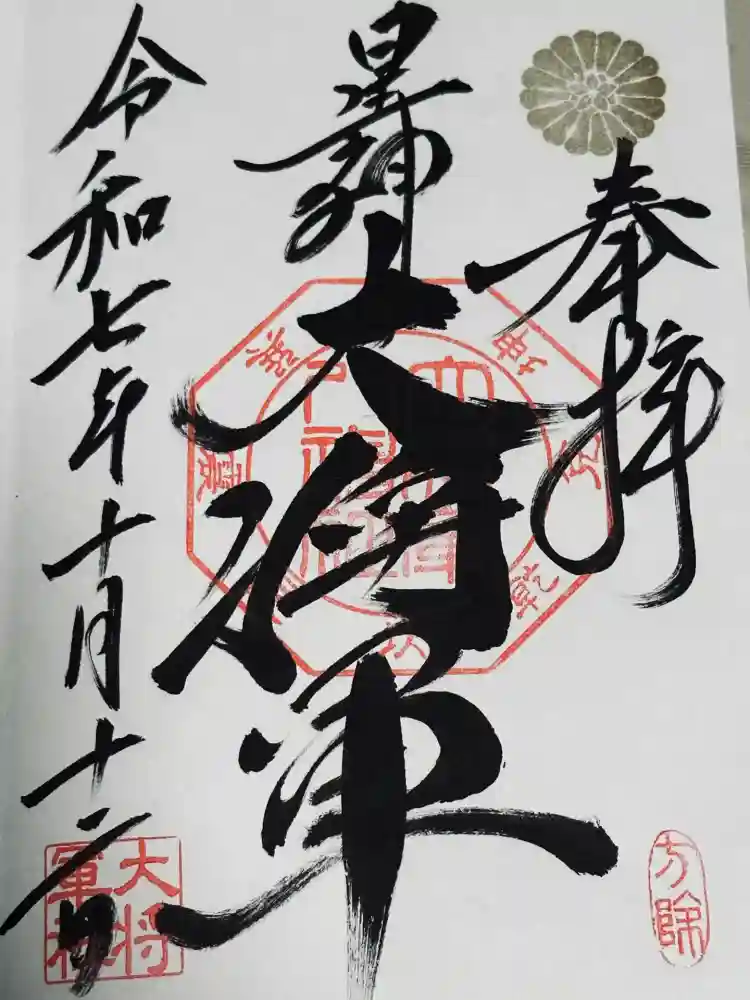 奉拝
星神
大将軍
令和七年十月十二日
方除
大将
軍神